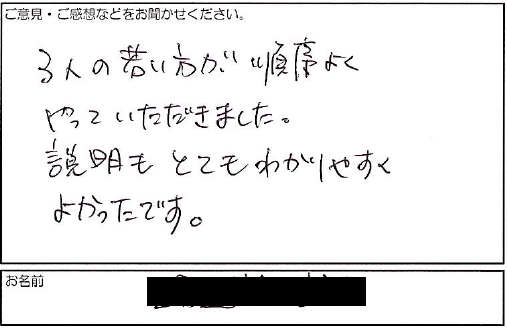 ご意見・ご感想などをお聞かせください。
3人の若い方が順序よく
やっていただきました。
説明もとてもわかりやすく
よかったです。
お名前